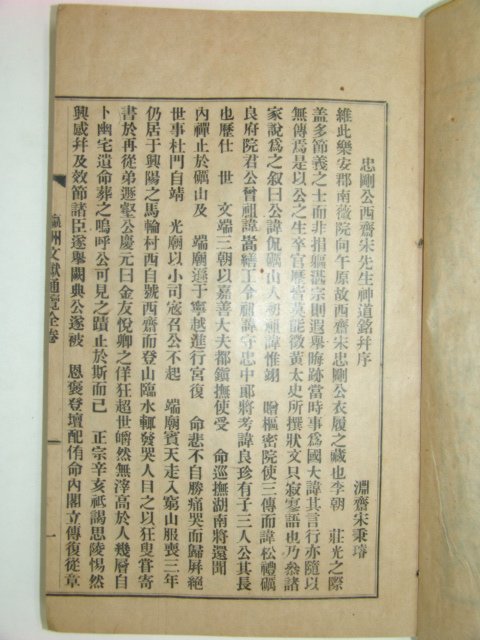 忠剛公西齋宋先生神道銘幷序
淵齋宋秉璿
維此樂安郡南薇院向午原故西齋宋忠剛公衣履之藏也李朝 莊光之際
盖多節義之士而非捐軀湛宗則遐擧晦跡當時事爲國大諱其言行亦隨以
無傳焉是以公之生卒官歷皆莫能徵黃太史所撰狀文只寂寥語也乃叅諸
家說爲之叙曰公諱侃礪山人初祖諱惟翊 贈樞密院使三傳而諱松禮礪
良府院君公曾祖諱嵩繕工令祖諱守忠中郞將考諱良珍有子三人公其長
也歷仕 世 文端三朝以嘉善大夫都鎭撫使受 命巡撫湖南將還聞
內禪止於礪山及 端廟遜于寧越進行宮復 命悲不自勝痛哭而歸屛絶
世事杜門自靖 光廟以小司寇召公不起 端廟賓天走入窮山服喪三年
仍居于興陽之馬輪村西自號西齋而登山臨水輒發哭人目之以狂叟嘗寄
書於再從弟遯壑公慶元曰金友悅卿之佯狂超世皭然無滓高於人幾層自
卜幽宅遺命葬之嗚呼公可見之蹟止於斯而已 正宗辛亥祇謁思陵惕然
興感幷及效節諸臣遂擧闕典公遂被 恩褒登壇配侑命內閣立傳復從章
瀛州文獻通覽全卷
一